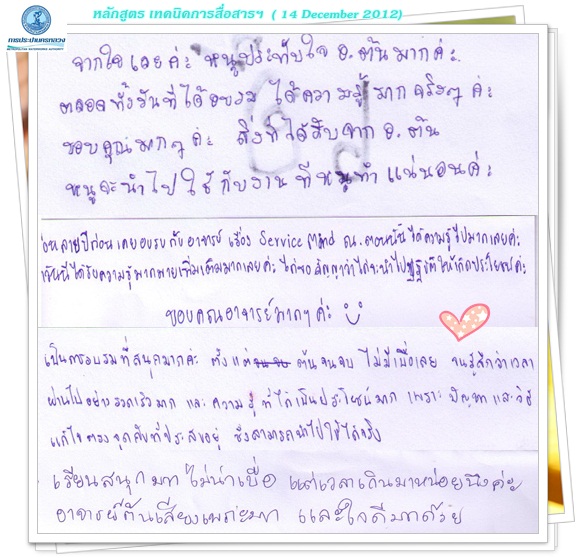 หลักสูตร เทคนิคการสื่อสารฯ ( 14 December 2012)
การประปานครหลวง
จากใจเลยค่ะ หนูประทับใจ อ.ต้นมากค่ะ
ตลอดทั้งวันที่ได้อบรม ได้ความรู้มากจริงๆ ค่ะ
ขอบคุณมากๆ ค่ะ สิ่งที่ได้รับจาก อ.ต้น
หนูจะนำไปใช้กับงานที่หนูทำแน่นอนค่ะ
ปีก่อนเคยอบรมกับอาจารย์ เรื่อง Service Mind ณ.ตอนนั้นได้ความรู้ไปมากเลยค่ะ
ได้รับความรู้มากมายเพิ่มเติมมากเลยค่ะ สัญญาว่าจะนำไปปฏิบัติให้เกิดประโยชน์ค่ะ
ขอบคุณอาจารย์มากๆ ค่ะ
เป็นการอบรมที่สนุกมากค่ะ ตั้งแต่ ต้นจนจบ ไม่มีเบื่อเลย จนรู้สึกว่าเวลา
ผ่านไปอย่างรวดเร็วมาก และความรู้ ที่ได้เป็นประโยชน์มาก เพราะ ปัญหาและวิธี
แก้ไขตรงจุดกับที่ประสบอยู่ ซึ่งสามารถนำไปใช้ได้จริง
เรียนสนุกมาก ไม่น่าเบื่อ แต่เวลาเดินมาหน่อยนึงค่ะ
อาจารย์ต้นเสียงเพราะมาก และใจดีมากด้วย